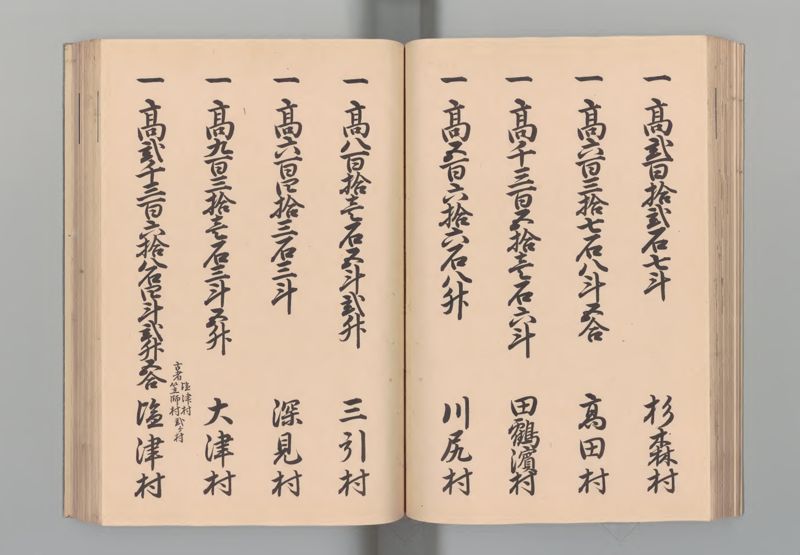 一 高弐百拾弐石七斗 杉森村
一 高六百三拾七石八斗五合 高田村
一 高千三百五拾壱石六斗 田鶴濱村
一 高五百六拾六石八舛 川尻村
一 高八百拾壱石五斗弐舛 三引村
一 高六百四拾三石三斗 深見村
一 高九百三拾壱石三斗五舛 大津村
一 高弐千三百六拾八石四斗弐舛五合 塩津村
古者塩津村
笠師村弐ヶ村